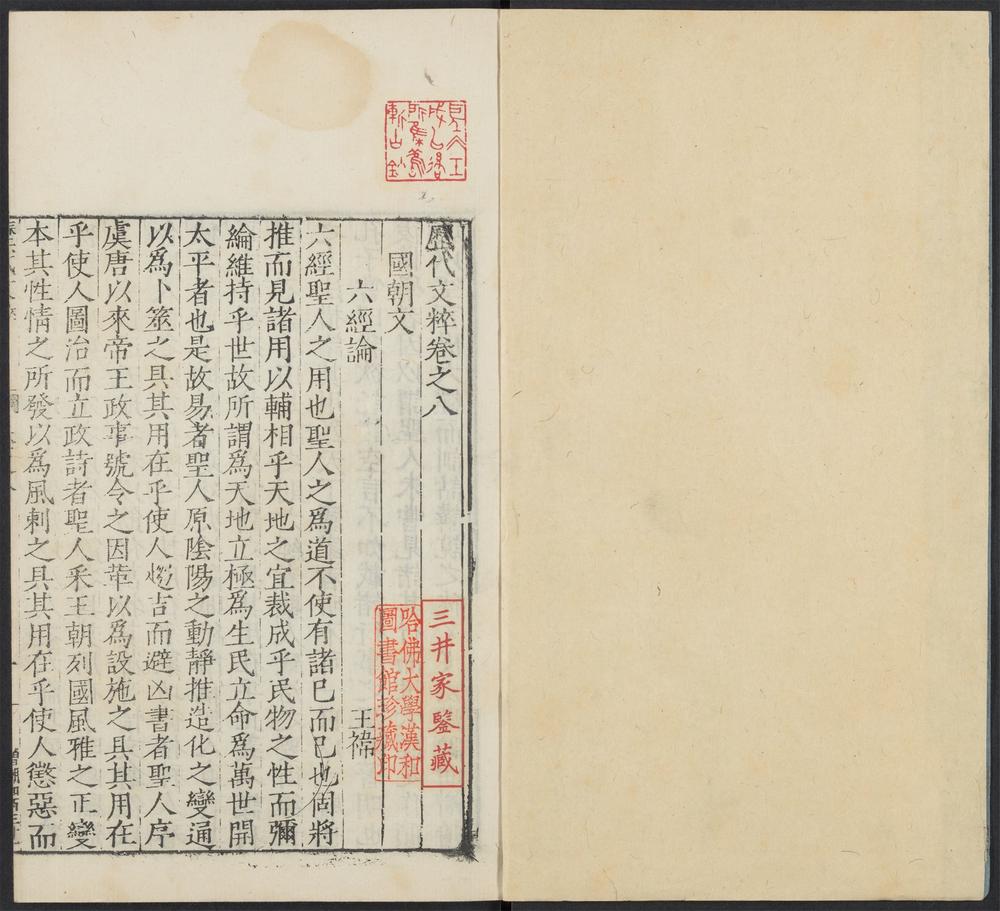 歷代文粹卷之八
國朝文
六經論
王禕
六經聖人之用也聖人之爲道不使有諸己而已也固將
推而見諸用以輔相乎天地之宜裁成乎民物之性而彌
綸維持乎世故所謂爲天地立極爲生民立命爲萬世開
太平者也是故易者聖人原陰陽之動靜推造化之變通
以爲卜筮之具其用在乎使人趨吉而避凶書者聖人序
虞唐以來帝王政事號令之因革以爲設施之具其用在
乎使人圖治而立政詩者聖人采王朝列國風雅之正變
本其性情之所發以爲風刺之具其用在乎使人懲惡而
三井家鑒藏
哈佛大學漢和
圖書館珍藏印